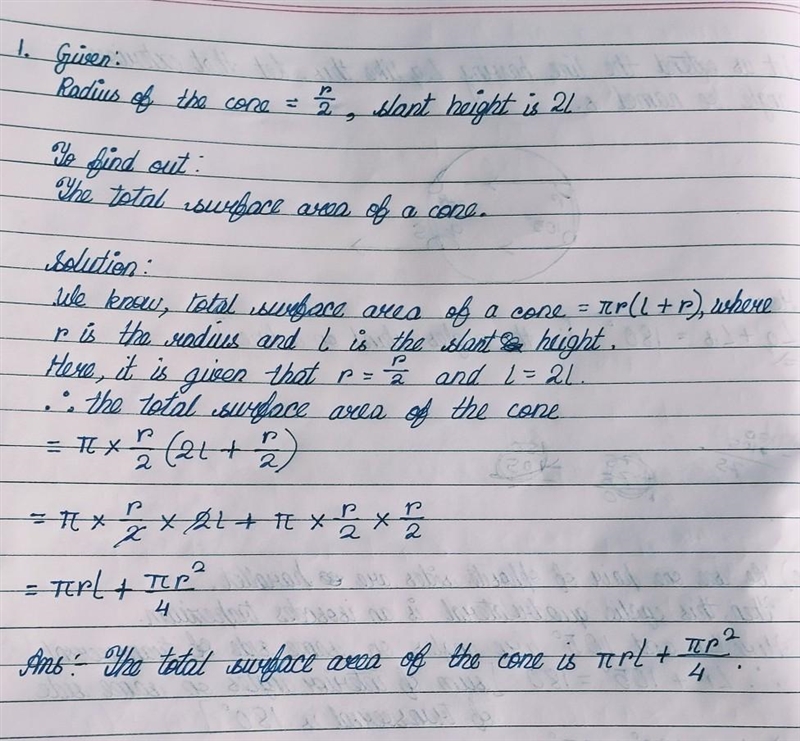 1. Given:
Radius of the cone = r/2, slant height is 2l
To find out:
The total surface area of a cone.
Solution:
We know, total surface area of a cone = πr(l + r), where
r is the radius and l is the slant height.
Here, it is given that r = r/2 and l = 2l.
∴ the total surface area of the cone
= π × r/2 (2l + r/2)
= π × r/2 × 2l + π × r/2 × r/2
= πrl + πr²/4
Ans :- The total surface area of the cone is πrl + πr²/4.